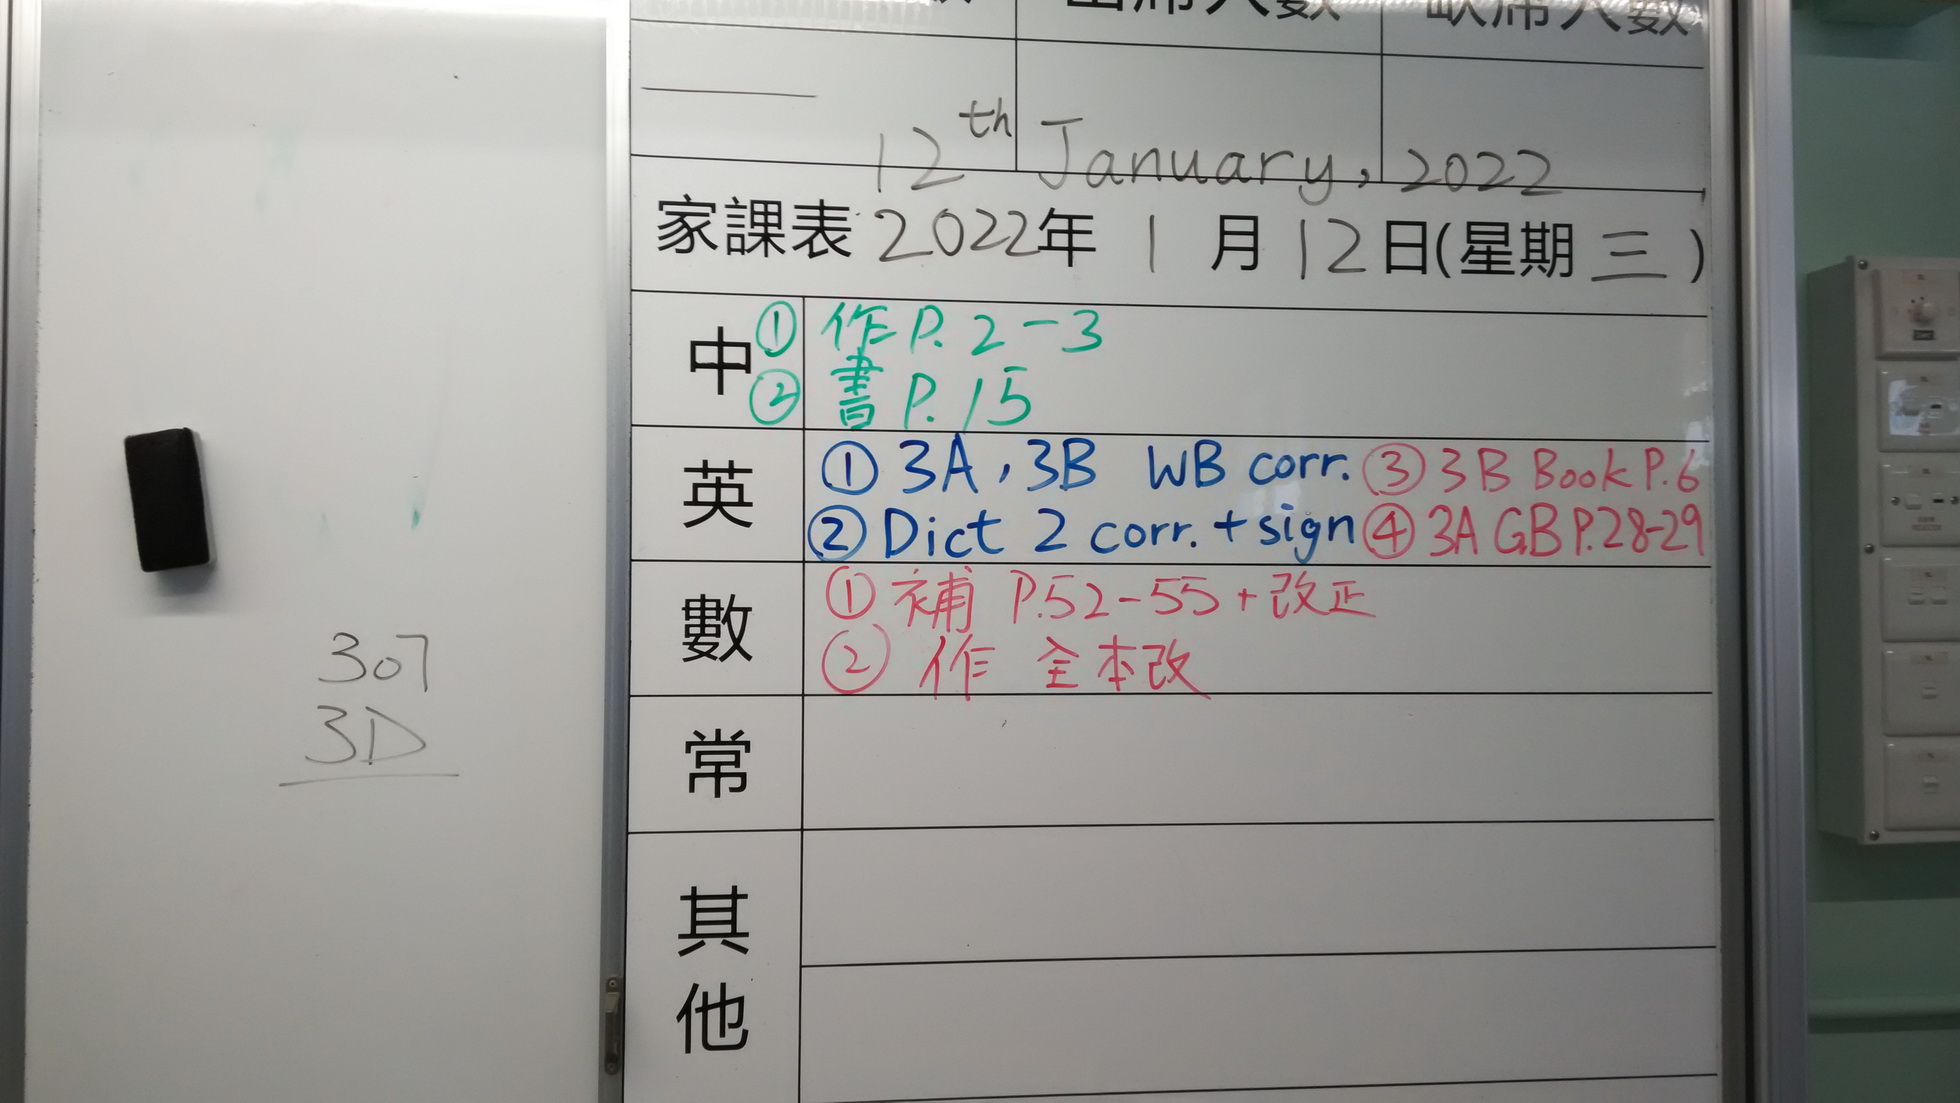 出席人數 缺席人數
12th January, 2022
家課表 2022年 1 月 12 日(星期 三 )
中 ① 作 P. 2-3
② 書 P. 15
英 ① 3A, 3B WB corr. ③ 3B Book P.6
② Dict 2 corr. + sign ④ 3A GB P.28-29
數 ① 補 P.52-55 + 改正
② 作 全本改
常
其他
307
3D